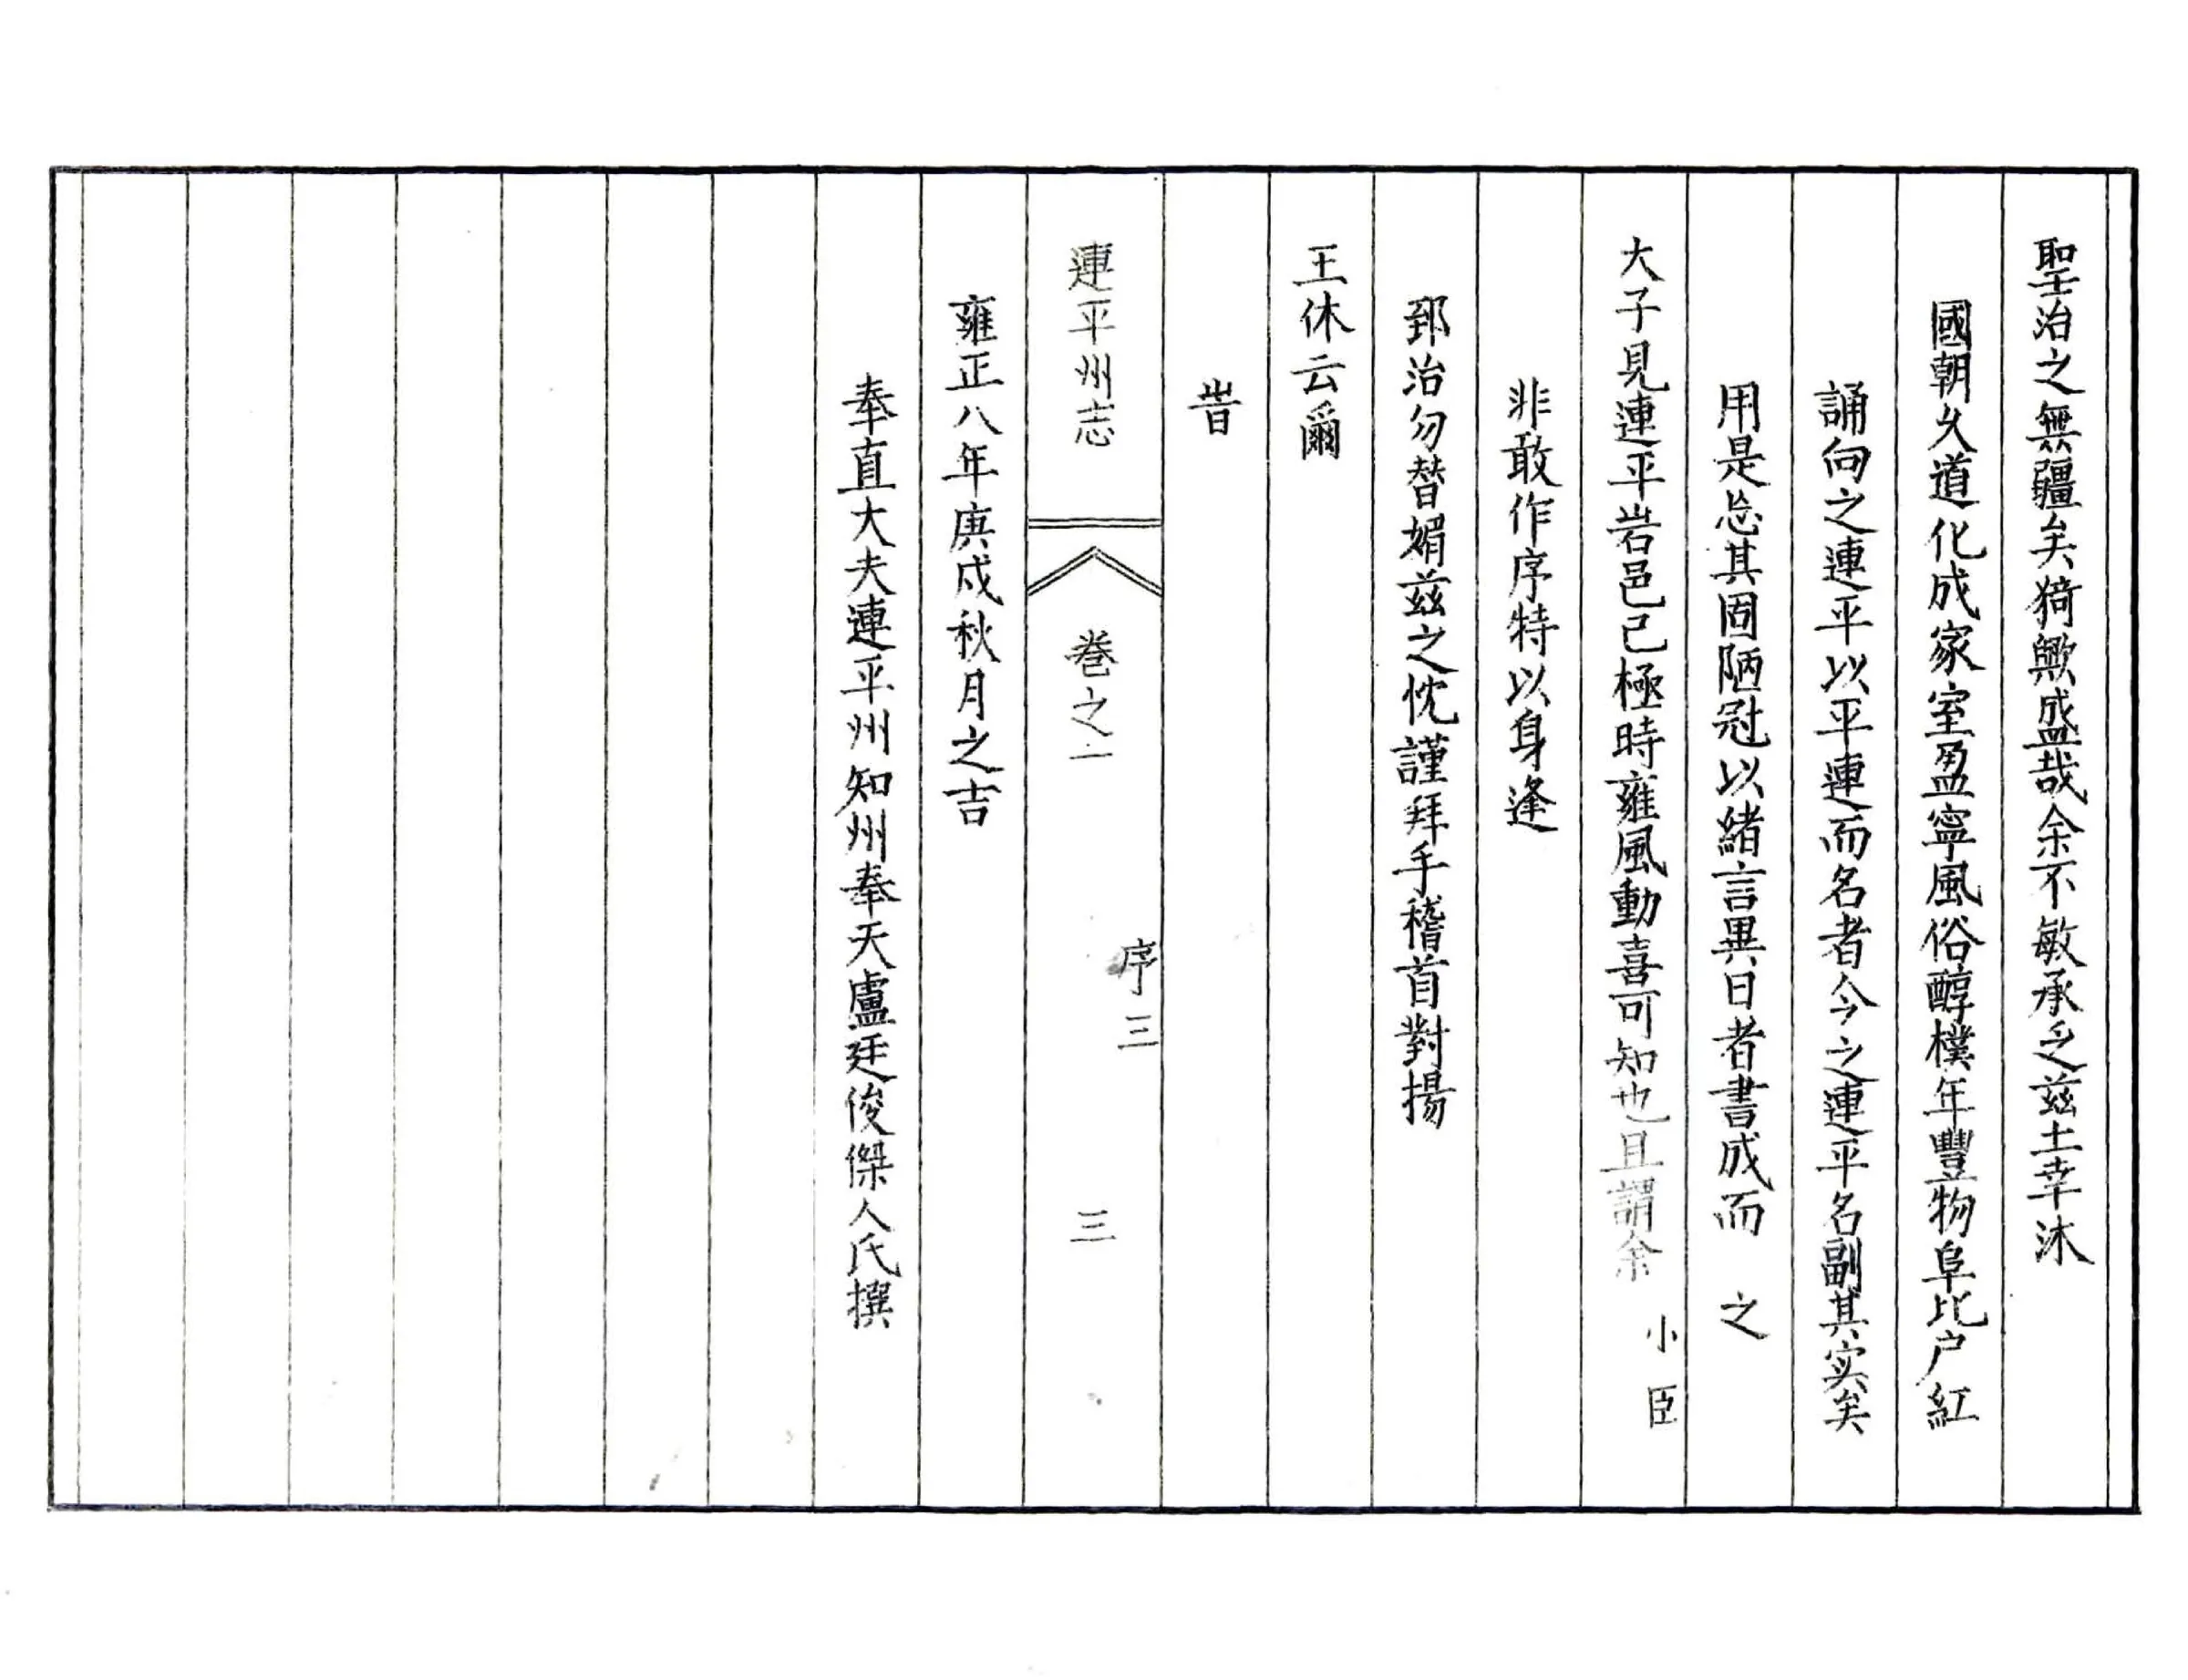 聖治之無疆矣猗歟盛哉余不敏承乏兹土幸沐
國朝久道化成家室盈寧風俗醇樸年豐物阜比户紅
誦向之連平以平連而名者今之連平名副其实矣
用是忘其固陋冠以緒言異日者書成而 之
大子見連平岩邑已極時雍風動喜可知也且謂余 小臣
非敢作序特以身逢
郅治勿替媚兹之忱謹拜手稽首對揚
王休云爾
旹
連平州志 卷之一 序三 三
雍正八年庚戌秋月之吉
奉直大夫連平州知州奉天盧廷俊傑人氏撰